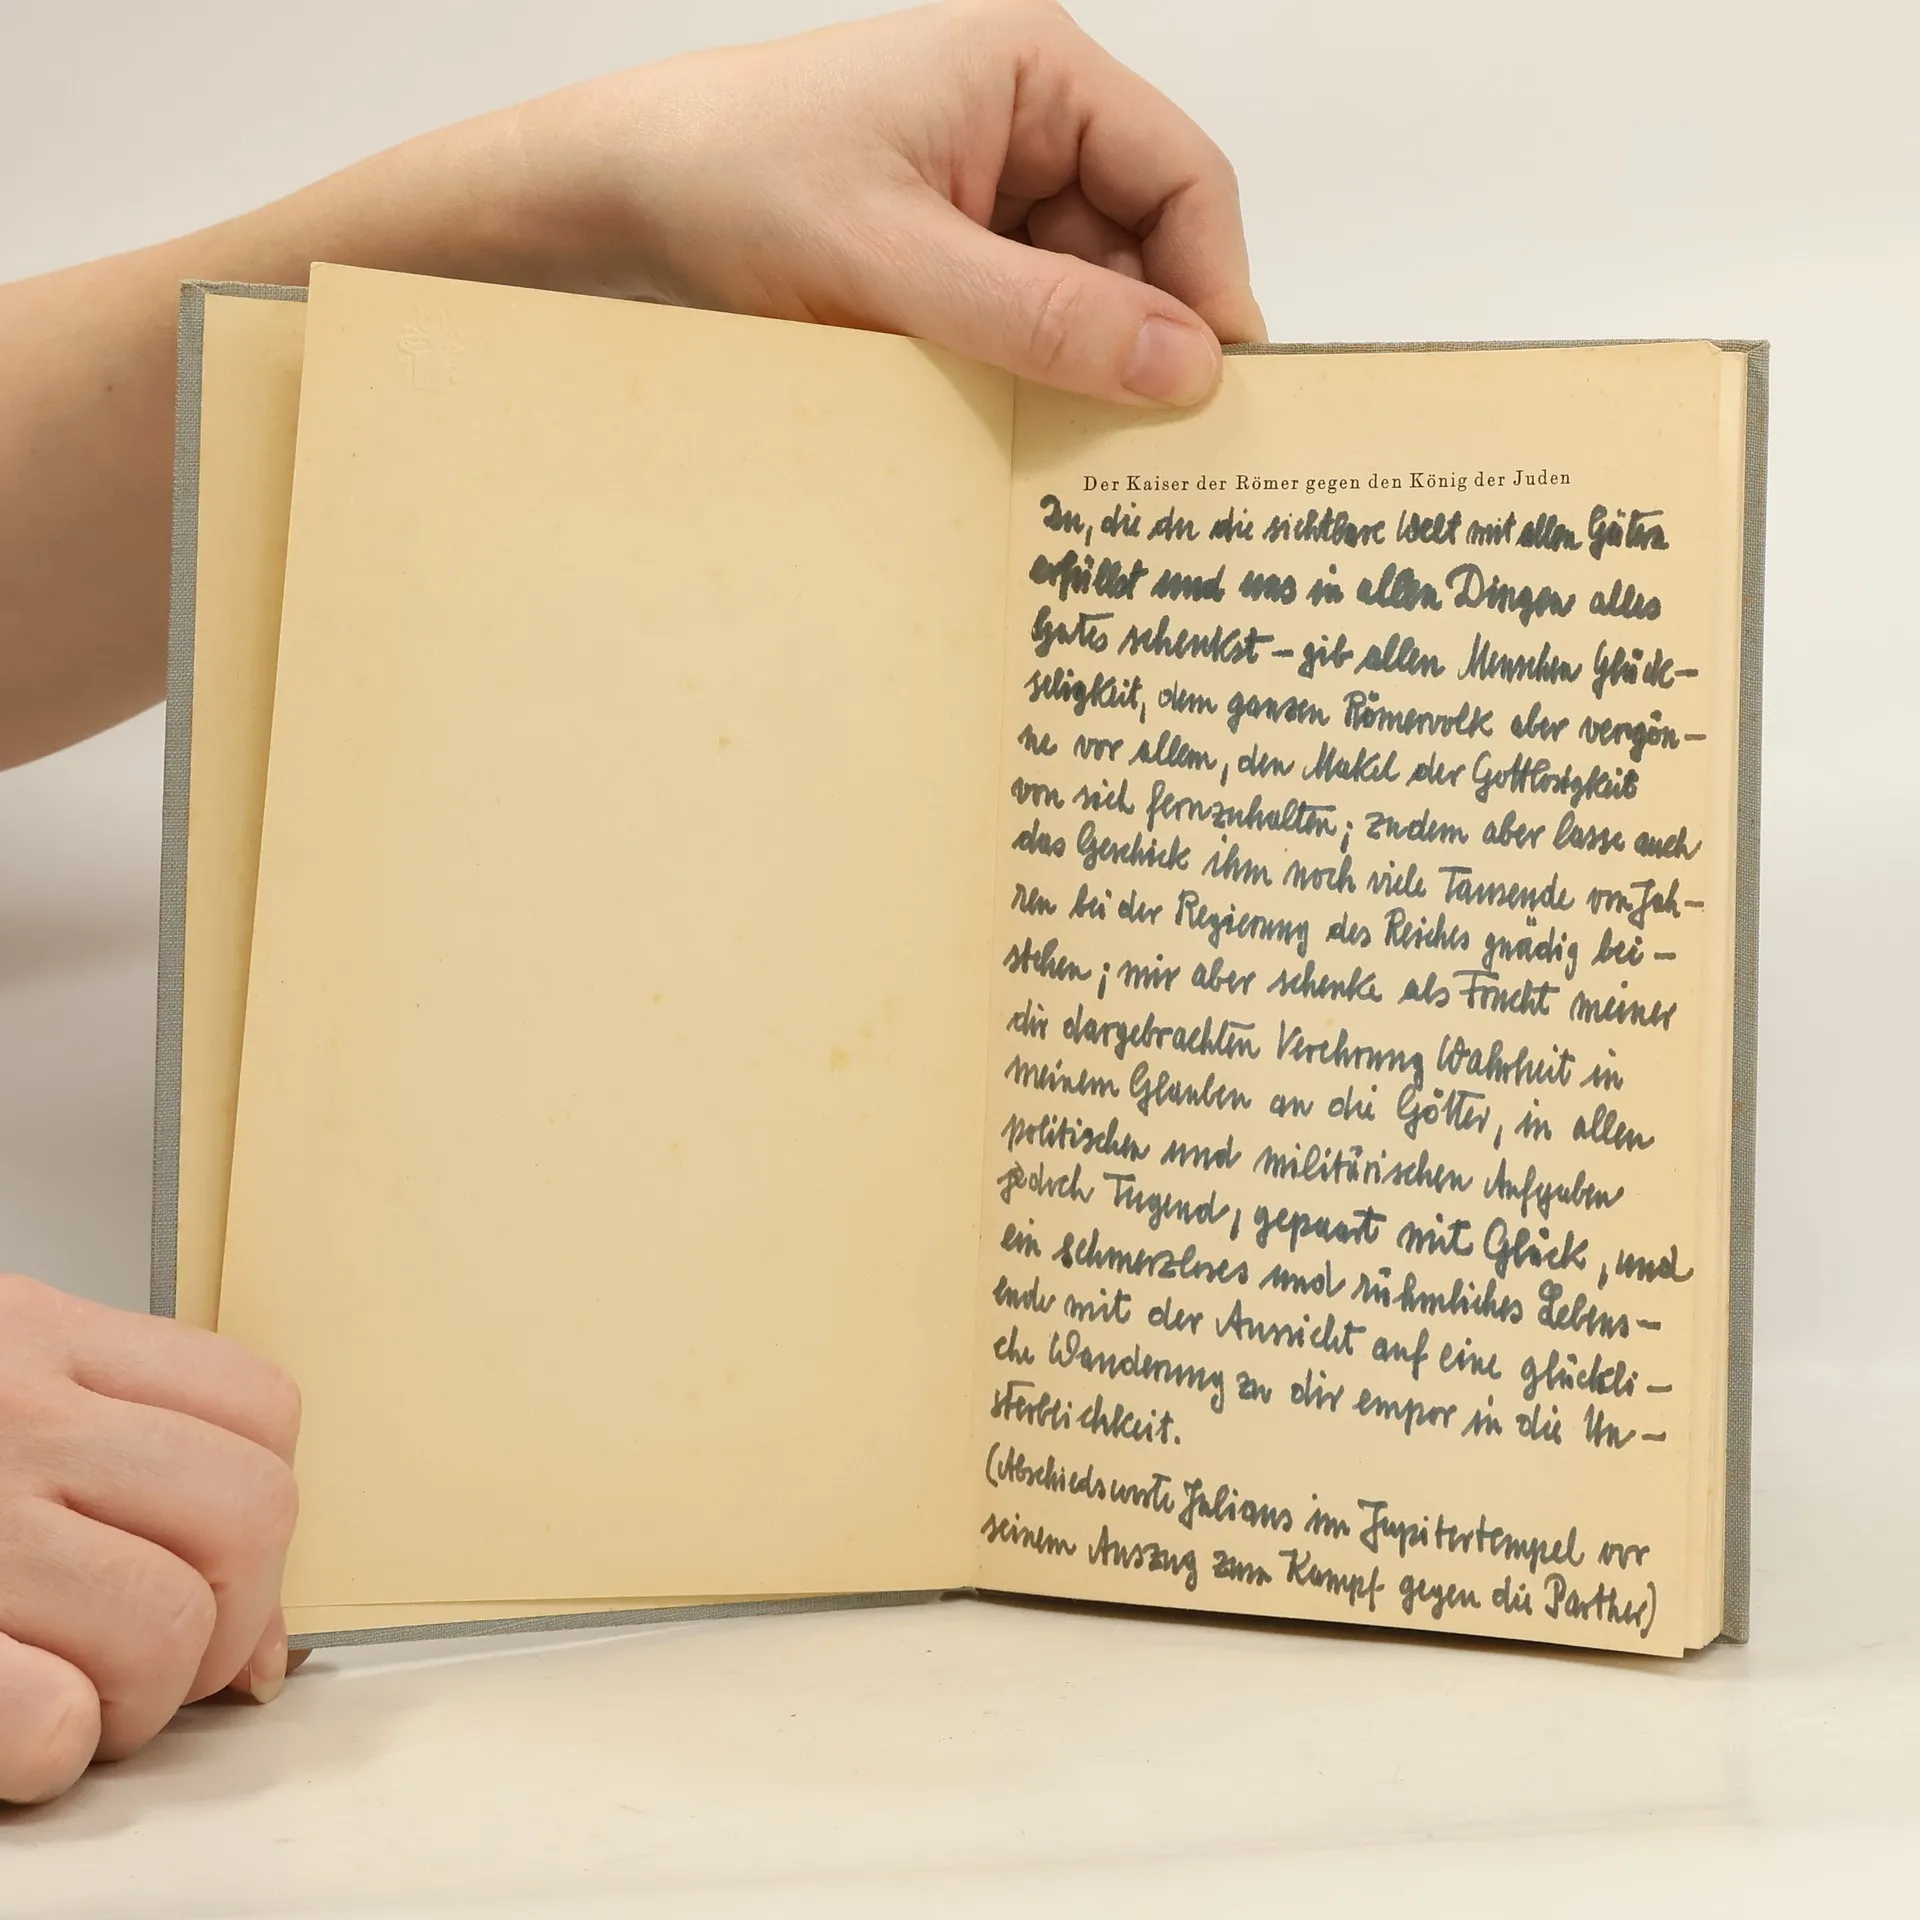 Der Kaiser der Römer gegen den König der Juden
Du, die du die sichtbare Welt mit allen Götern
erfüllst und uns in allen Dingen alles
Gutes schenkst – gib allen Menschen Glück–
seligkeit, dem ganzen Römervolk aber vergön–
ne vor allem, den Makel der Gottlosigkeit
von sich fernzuhalten; zudem aber lasse auch
das Geschick ihm noch viele Tausende von Jah–
ren bei der Regierung des Reiches gnädig bei–
stehen; mir aber schenke als Frucht meiner
dir dargebrachten Verehrung Wahrheit in
meinem Glauben an die Götter, in allen
politischen und militärischen Aufgaben
jedoch Tugend, gepaart mit Glück, und
ein schmerzloses und rühmliches Lebens–
ende mit der Aussicht auf eine glückli–
che Wanderung zu dir empor in die Un–
sterblichkeit.
(Abschiedsworte Julians im Jupitertempel vor
seinem Auszug zum Kampf gegen die Parther)